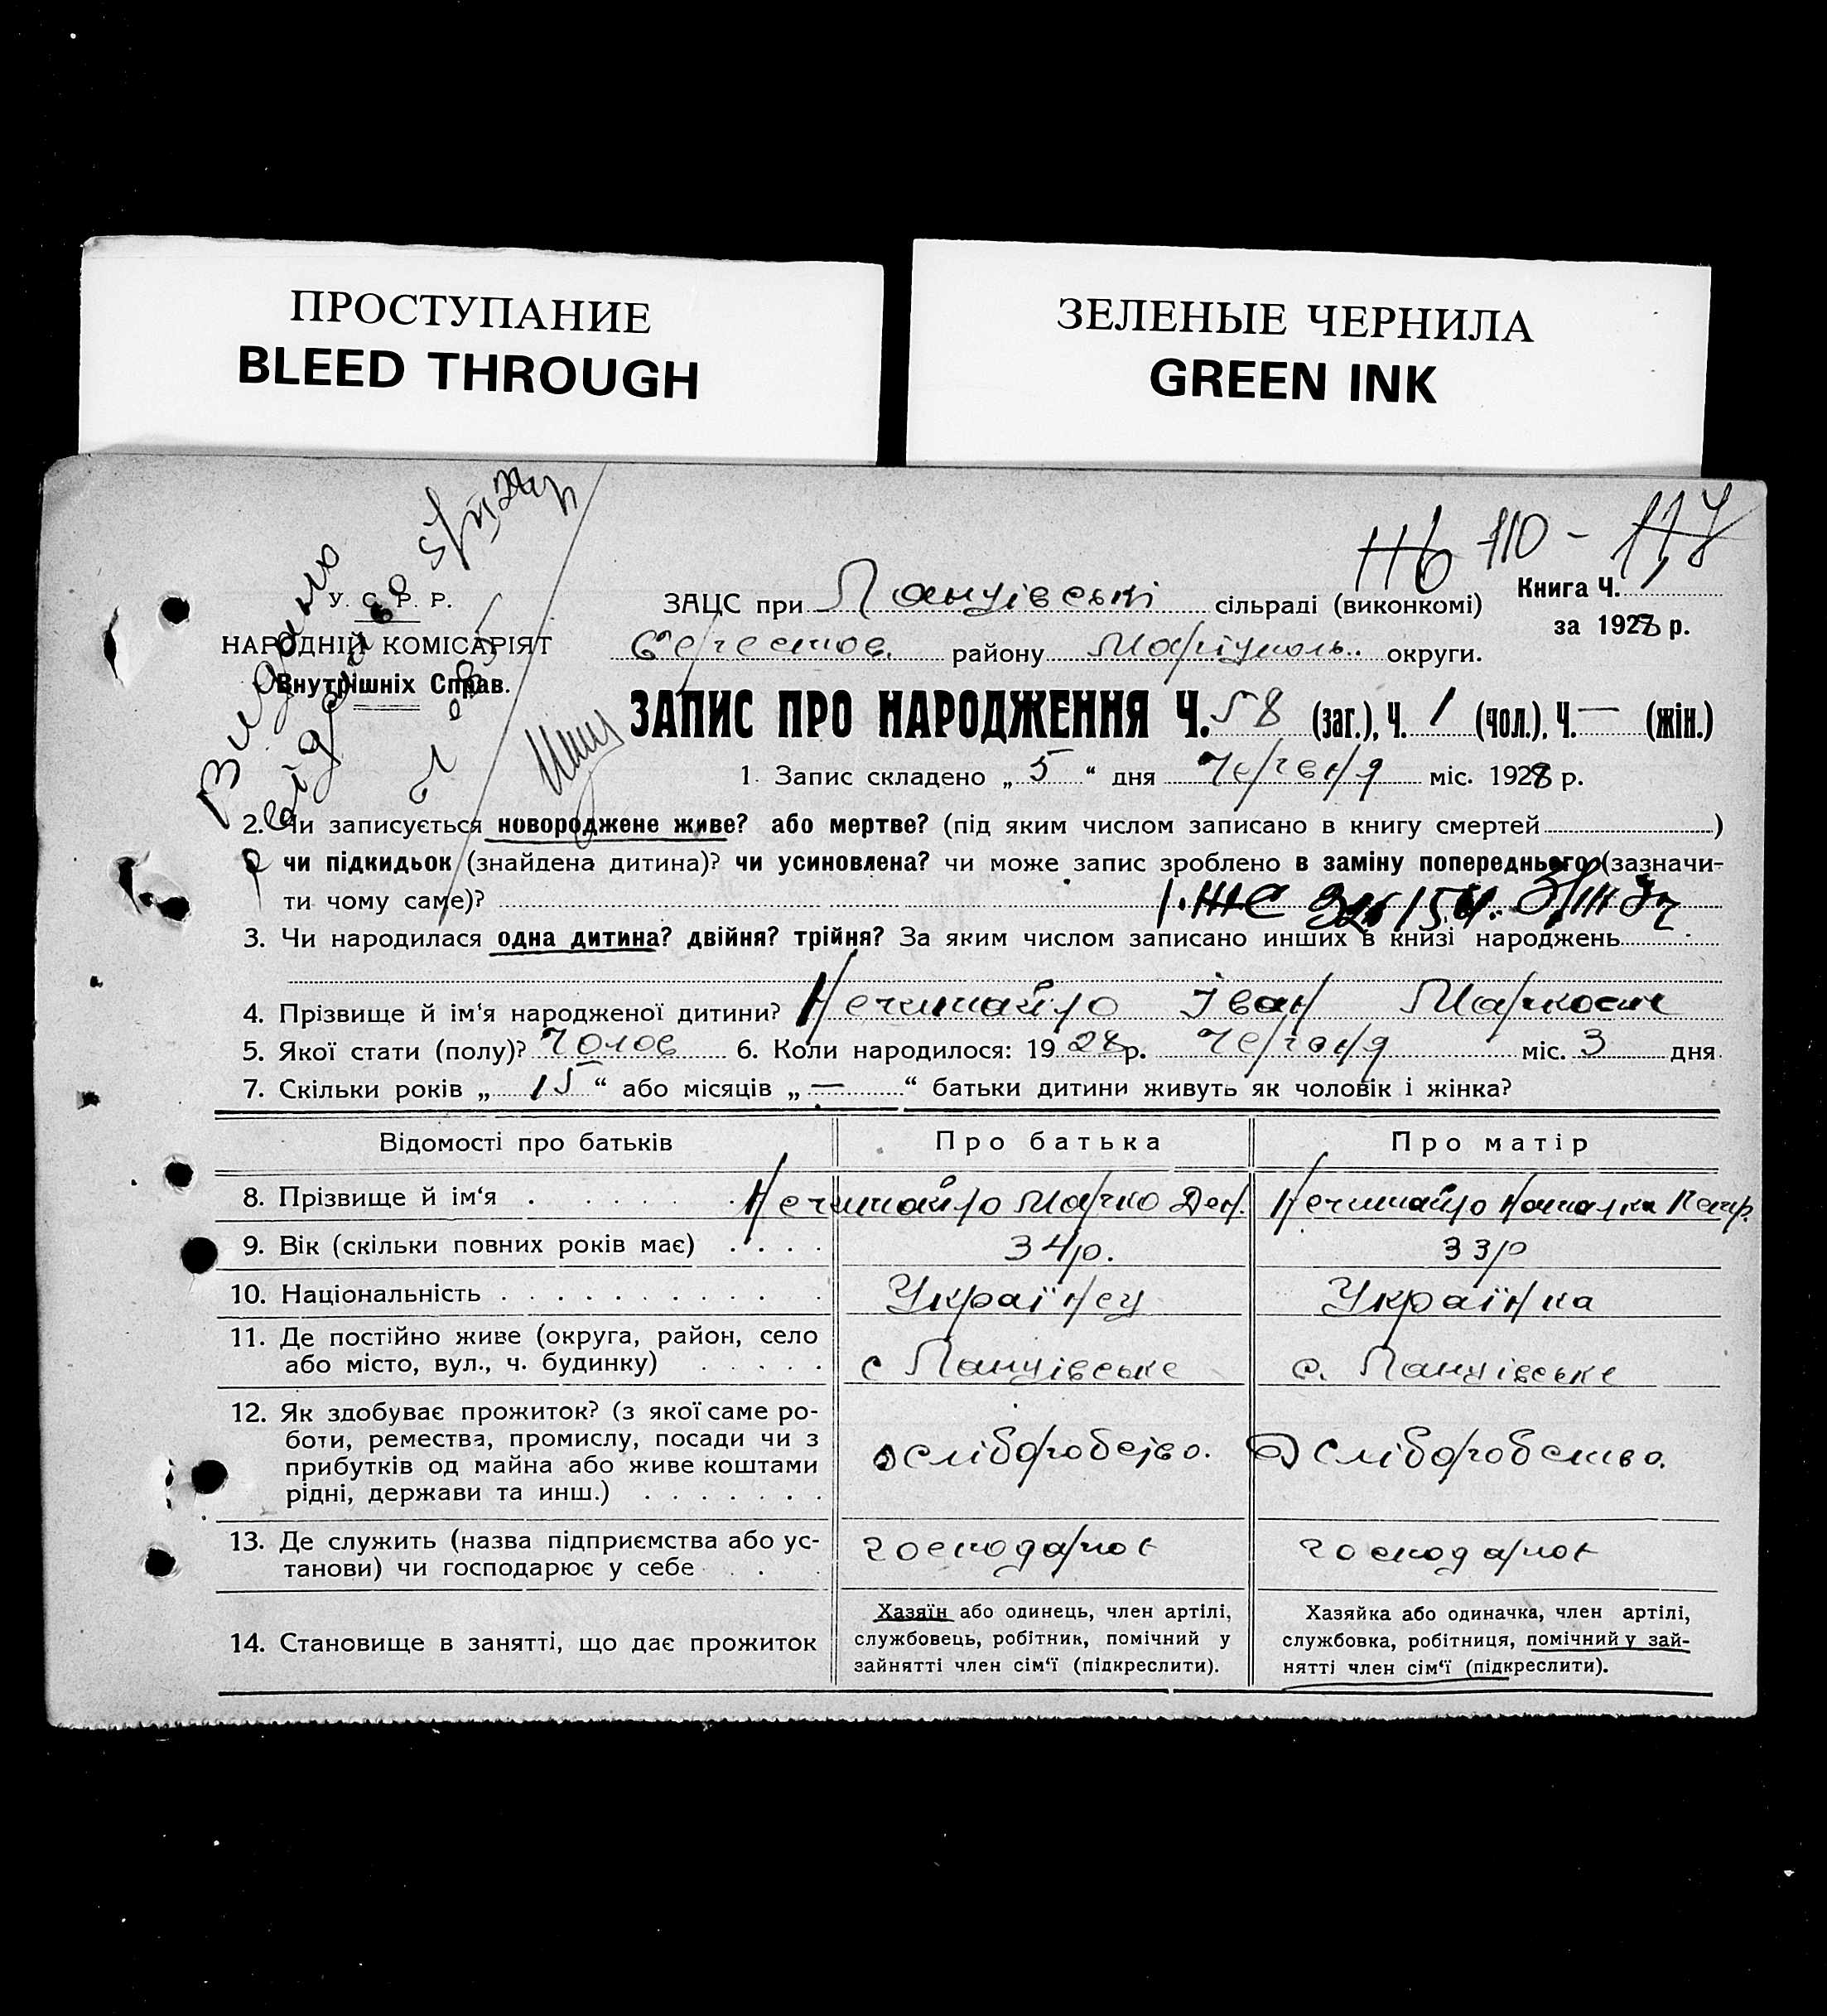 ПРОСТУПАНИЕ
BLEED THROUGH
ЗЕЛЕНЫЕ ЧЕРНИЛА
GREEN INK
116 110 - 117
У. С. Р. Р.
НАРОДНІЙ КОМІСАРІЯТ
Внутрішніх Справ.
Видано
ЗАЦС при сільраді (виконкомі)
Книга Ч. 1
за 1928 р.
району Маріуполь. округи.
ЗАПИС ПРО НАРОДЖЕННЯ Ч. 58 (заг.), Ч. 1 (чол.), Ч. — (жін.)
1. Запис складено „ 5 “ дня Червня міс. 1928 р.
2. Чи записується новороджене живе? або мертве? (під яким числом записано в книгу смертей)
чи підкидьок (знайдена дитина)? чи усиновлена? чи може запис зроблено в заміну попереднього (зазначи-
ти чому саме)?
3. Чи народилася одна дитина? двійня? трійня? За яким числом записано инших в книзі народжень
4. Прізвище й ім‘я народженої дитини? Нечитайло Іван Маркович
5. Якої стати (полу)? Чолов 6. Коли народилося: 1928 р. Червня міс. 3 дня
7. Скільки років „ 15 “ або місяців „ — “ батьки дитини живуть як чоловік і жінка?
Відомості про батьків Про батька Про матір
8. Прізвище й ім‘я Нечитайло Марко Дем. Нечитайло Наталка Петр.
9. Вік (скільки повних років має) 34р. 33р
10. Національність Українец Українка
11. Де постійно живе (округа, район, село
або місто, вул., ч. будинку) с с.
12. Як здобуває прожиток? (з якої саме ро-
боти, ремества, промислу, посади чи з
прибутків од майна або живе коштами
рідні, держави та инш.)
13. Де служить (назва підприємства або ус-
танови) чи господарює у себе господарює господарює
14. Становище в занятті, що дає прожиток
Хазяїн або одинець, член артілі,
службовець, робітник, помічний у
зайнятті член сім‘ї (підкреслити).
Хазяйка або одиначка, член артілі,
службовка, робітниця, помічний у зай-
нятті член сім‘ї (підкреслити).